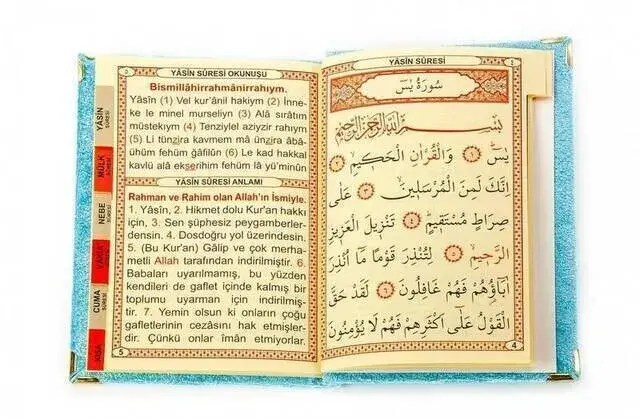 YÂSÎN SÛRESİ OKUNUŞU
Bismillâhirrahmânirrahıym.
Yâsîn (1) Vel kur'ânil hakiym (2) İnne-
ke le minel murseliyn (3) Alâ sırâtım
müstekıym (4) Tenziylel aziyzir rahıym
(5) Li tünzira kavmem mâ ünzira âbâ-
ühüm fehüm ğâfilûn (6) Le kad hakkal
kavlü alâ ekserihim fehüm lâ yü'minûn
YÂSÎN SÛRESİ ANLAMI
Rahman ve Rahim olan Allah'ın İsmiyle.
1. Yâsîn, 2. Hikmet dolu Kur'an hakkı
için, 3. Sen şüphesiz peygamberler-
densin. 4. Dosdoğru yol üzerindesin.
5. (Bu Kur'an) Gâlip ve çok merha-
metli Allah tarafından indirilmiştir. 6.
Babaları uyarılmamış, bu yüzden
kendileri de gaflet içinde kalmış bir
toplumu uyarman için indirilmiş-
tir. 7. Yemin olsun ki onların çoğu
gafletlerinin cezâsını hak etmişler-
dir. Çünkü onlar îman etmiyorlar.
5
YÂSÎN SÛRESİ
MÜLK SÛRESİ
NEBE SÛRESİ
CUMA SÛRESİ
YÂSÎN SÛRESİ
٤
سُورَةُ يٰسٓ
بِسْمِ اللّٰهِ الرَّحْمٰنِ الرَّحِيمِ
يٰسٓ ﴿١﴾ وَالْقُرْاٰنِ الْحَكِيمِ ﴿٢﴾
اِنَّكَ لَمِنَ الْمُرْسَلِينَ ﴿٣﴾ عَلٰى
صِرَاطٍ مُسْتَقِيمٍ ﴿٤﴾ تَنْزِيلَ الْعَزِيزِ
الرَّحِيمِ ﴿٥﴾ لِتُنْذِرَ قَوْمًا مَٓا اُنْذِرَ
اٰبَٓاؤُهُمْ فَهُمْ غَافِلُونَ ﴿٦﴾ لَقَدْ حَقَّ
الْقَوْلُ عَلٰٓى اَكْثَرِهِمْ فَهُمْ لَا يُؤْمِنُونَ
4